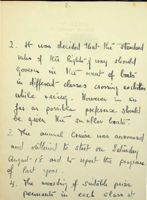 2. It was decided that the "Standard
rules of the Right of way should
govern in the event of boats
in different classes crossing each other
while racing. However in so
far as possible preference should
be given the smaller boats.
3. The annual Cruise was announced
and outlined to start on Saturday
August 18 and to repeat the programme
of last year.
4. The awarding of suitable prize
pennants in each class at